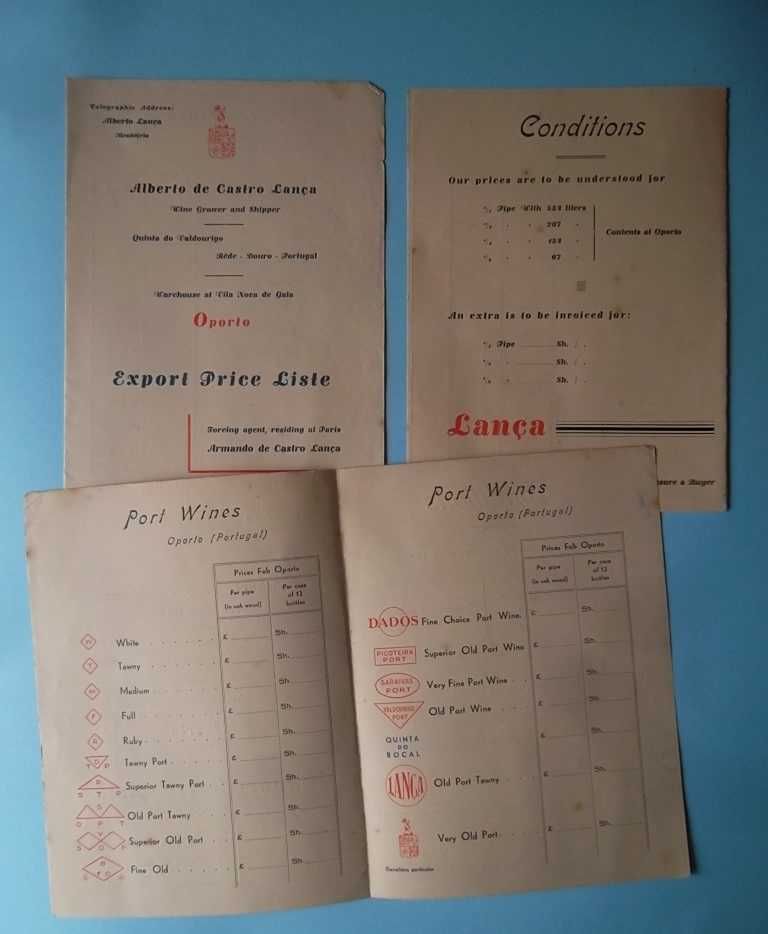 Telegraphic Address:
Alberto Lança
Alberto de Castro Lança
Wine Grower and Shipper
Quinta do Valdourigo
Rêde - Douro - Portugal
Warehouse at Vila Nova de Gaia
Oporto
Export Price Liste
Foreing agent, residing at Paris
Armando de Castro Lança
Conditions
Our prices are to be understood for
Pipe With 534 liters
267
134
67
Contents at Oporto
An extra is to be invoiced for:
Pipe Sh. / .
Sh. / .
Sh. / .
Lança
Buyer
Port Wines
Oporto (Portugal)
Prices Fob Oporto
Per pipe
(in oak wood)
Per case
of 12
bottles
W White £ Sh.
T Tawny £ Sh.
M Medium £ Sh.
F Full £ Sh.
R Ruby £ Sh.
T D P Tawny Port £ Sh.
S T P Superior Tawny Port £ Sh.
O P T Old Port Tawny £ Sh.
S O P Superior Old Port £ Sh.
Fine Old £ Sh.
Port Wines
Oporto (Portugal)
Prices Fob Oporto
Per pipe
(in oak wood)
Per case
of 12
bottles
DADOS Fine Choice Port Wine. £ Sh.
PICOTEIRA
PORT
Superior Old Port Wine £ Sh.
SARAIVAS
PORT
Very Fine Port Wine £ Sh.
VALDOURIGO
PORT
Old Port Wine £ Sh.
QUINTA
DO
BOCAL
£ Sh.
LANÇA Old Port Tawny £ Sh.
Very Old Port £ Sh.
Garrafeira particular